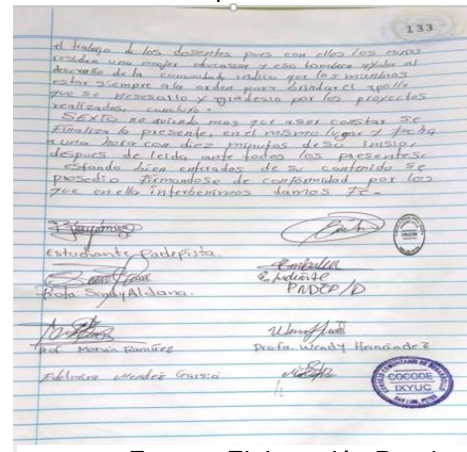 133
el trabajo de los dosentes pues con ellos los niños
resiben una mejor educasion y eso tambien ayuda al
desrrollo de la comunidad indico que los miembros
estar siempre ala orden para brindar el apollo
que se nesesario y agradesio por los proyectos
realizados, concluyo.
SEXTO no aviendo mas que aser constar se
Finaliza la presente, en el mismo lugar y fecha
a una hora con diez minutos de su inisio,
despues de leida ante todos los presentes,
estando bien enterados de su contenido se
prosedio firmandose de conformidad por los
que en ella interbenimos damos fe.
Estudiante Padepista.
Estudiante
PADEP/D
Profa. Sindy Aldana.
Prof. Marvin Ramírez
Profa. Wendy Hernández
Edelmira Mendez García
COCODE
IXYUC
SAN LUIS, PETEN